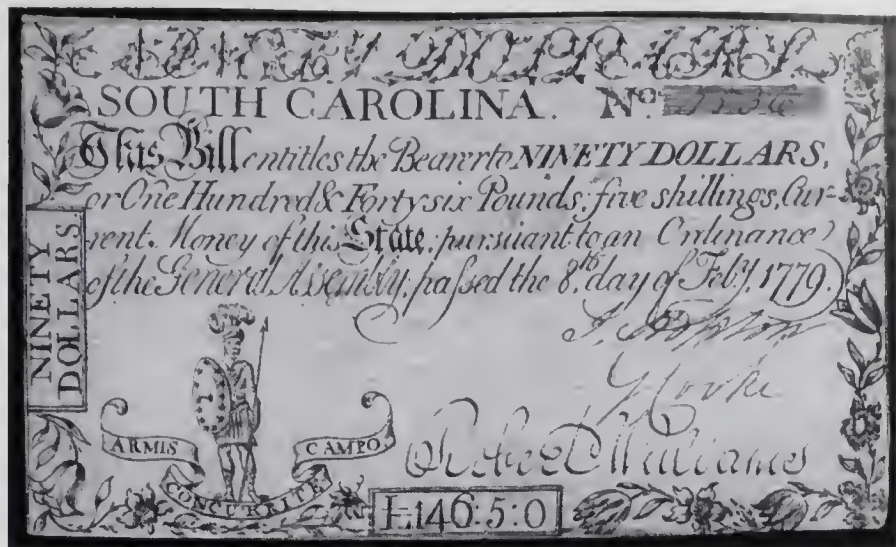 SOUTH CAROLINA. No.
This Bill entitles the Bearer to NINETY DOLLARS,
or One Hundred & Forty six Pounds, five shillings, Cur-
rent Money of this State, pursuant to an Ordinance
of the General Assembly, passed the 8th. day of Feby. 1779.
NINETY
DOLLARS
ARMIS
CONCURRITE
CAMPO
Robert Williams
£146:5:0